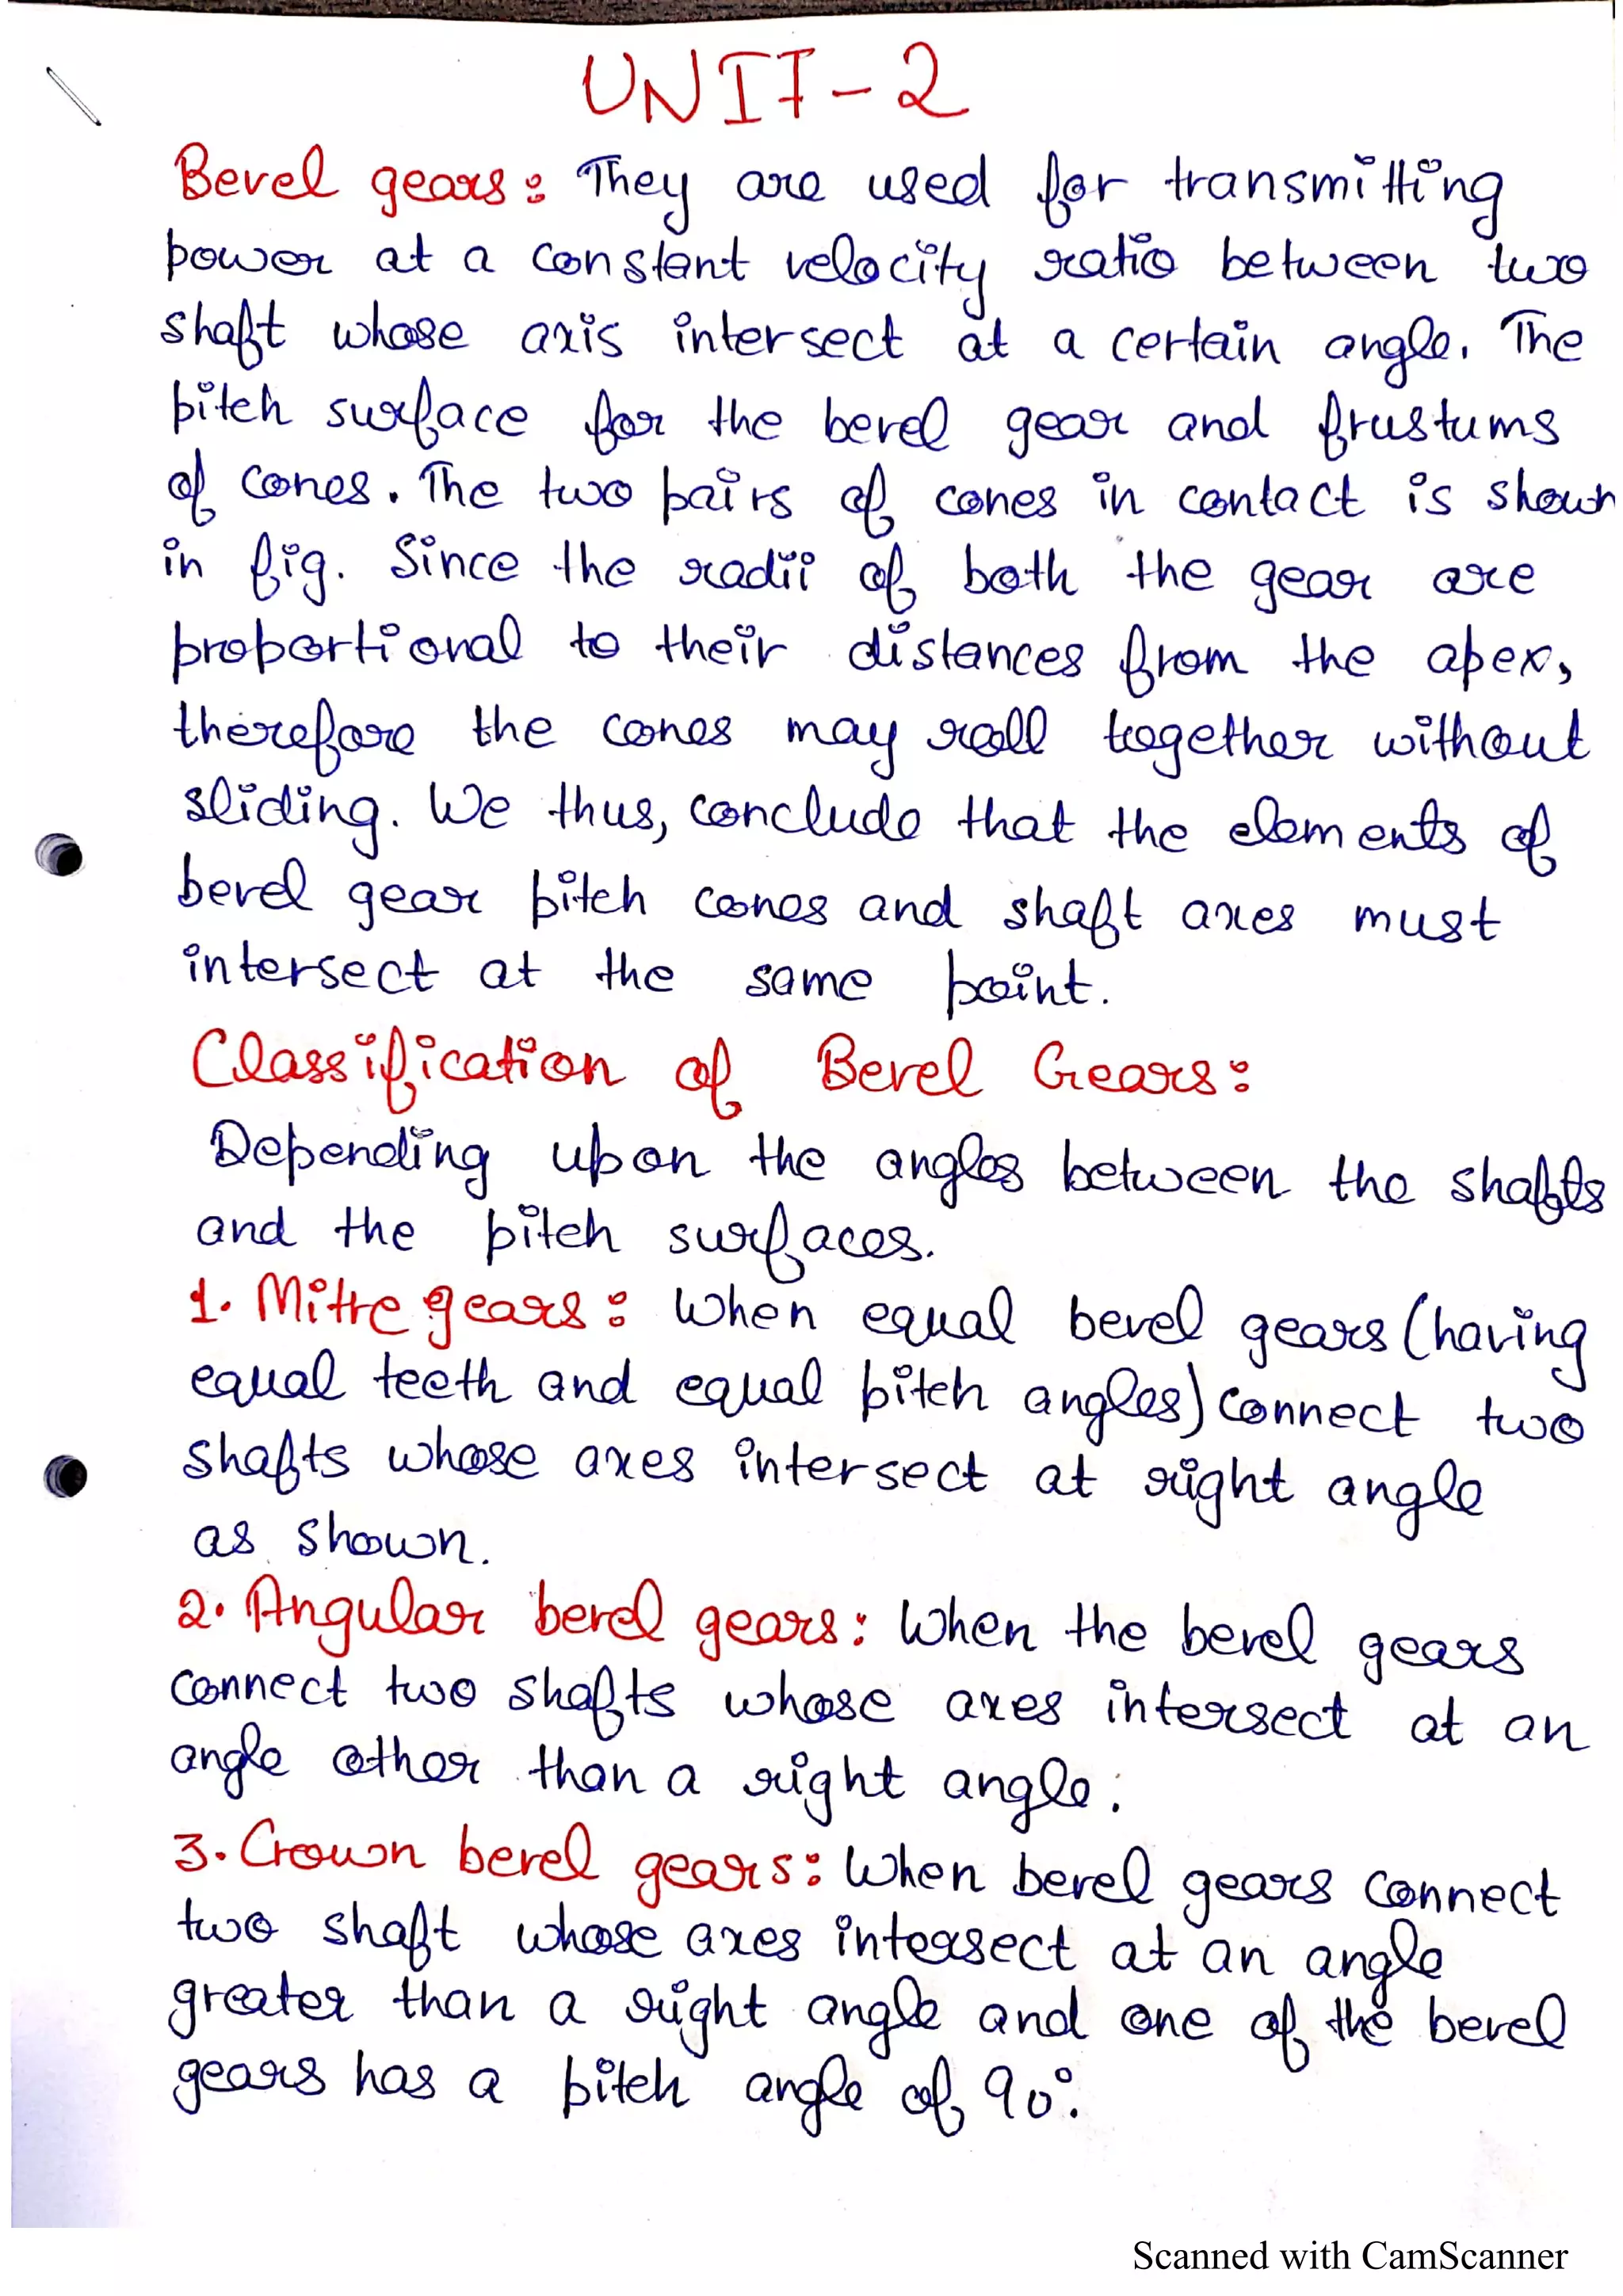 UNIT-2
Bevel gears: They are used for transmitting
power at a constant velocity ratio between two
shaft whose axis intersect at a certain angle. The
pitch surface for the bevel gear and frustums
of cones. The two pairs of cones in contact is shown
in fig. Since the radii of both the gear are
proportional to their distances from the apex,
therefore the cones may roll together without
sliding. We thus, conclude that the elements of
bevel gear pitch cones and shaft axes must
intersect at the same point.
Classification of Bevel Gears:
Depending upon the angles between the shafts
and the pitch surfaces.
1. Mitre gears: When equal bevel gears (having
equal teeth and equal pitch angles) connect two
shafts whose axes intersect at right angle
as shown.
2. Angular bevel gears: When the bevel gears
connect two shafts whose axes intersect at an
angle other than a right angle.
3. Crown bevel gears: When bevel gears connect
two shaft whose axes intersect at an angle
greater than a right angle and one of the bevel
gears has a pitch angle of 90°.
Scanned with CamScanner